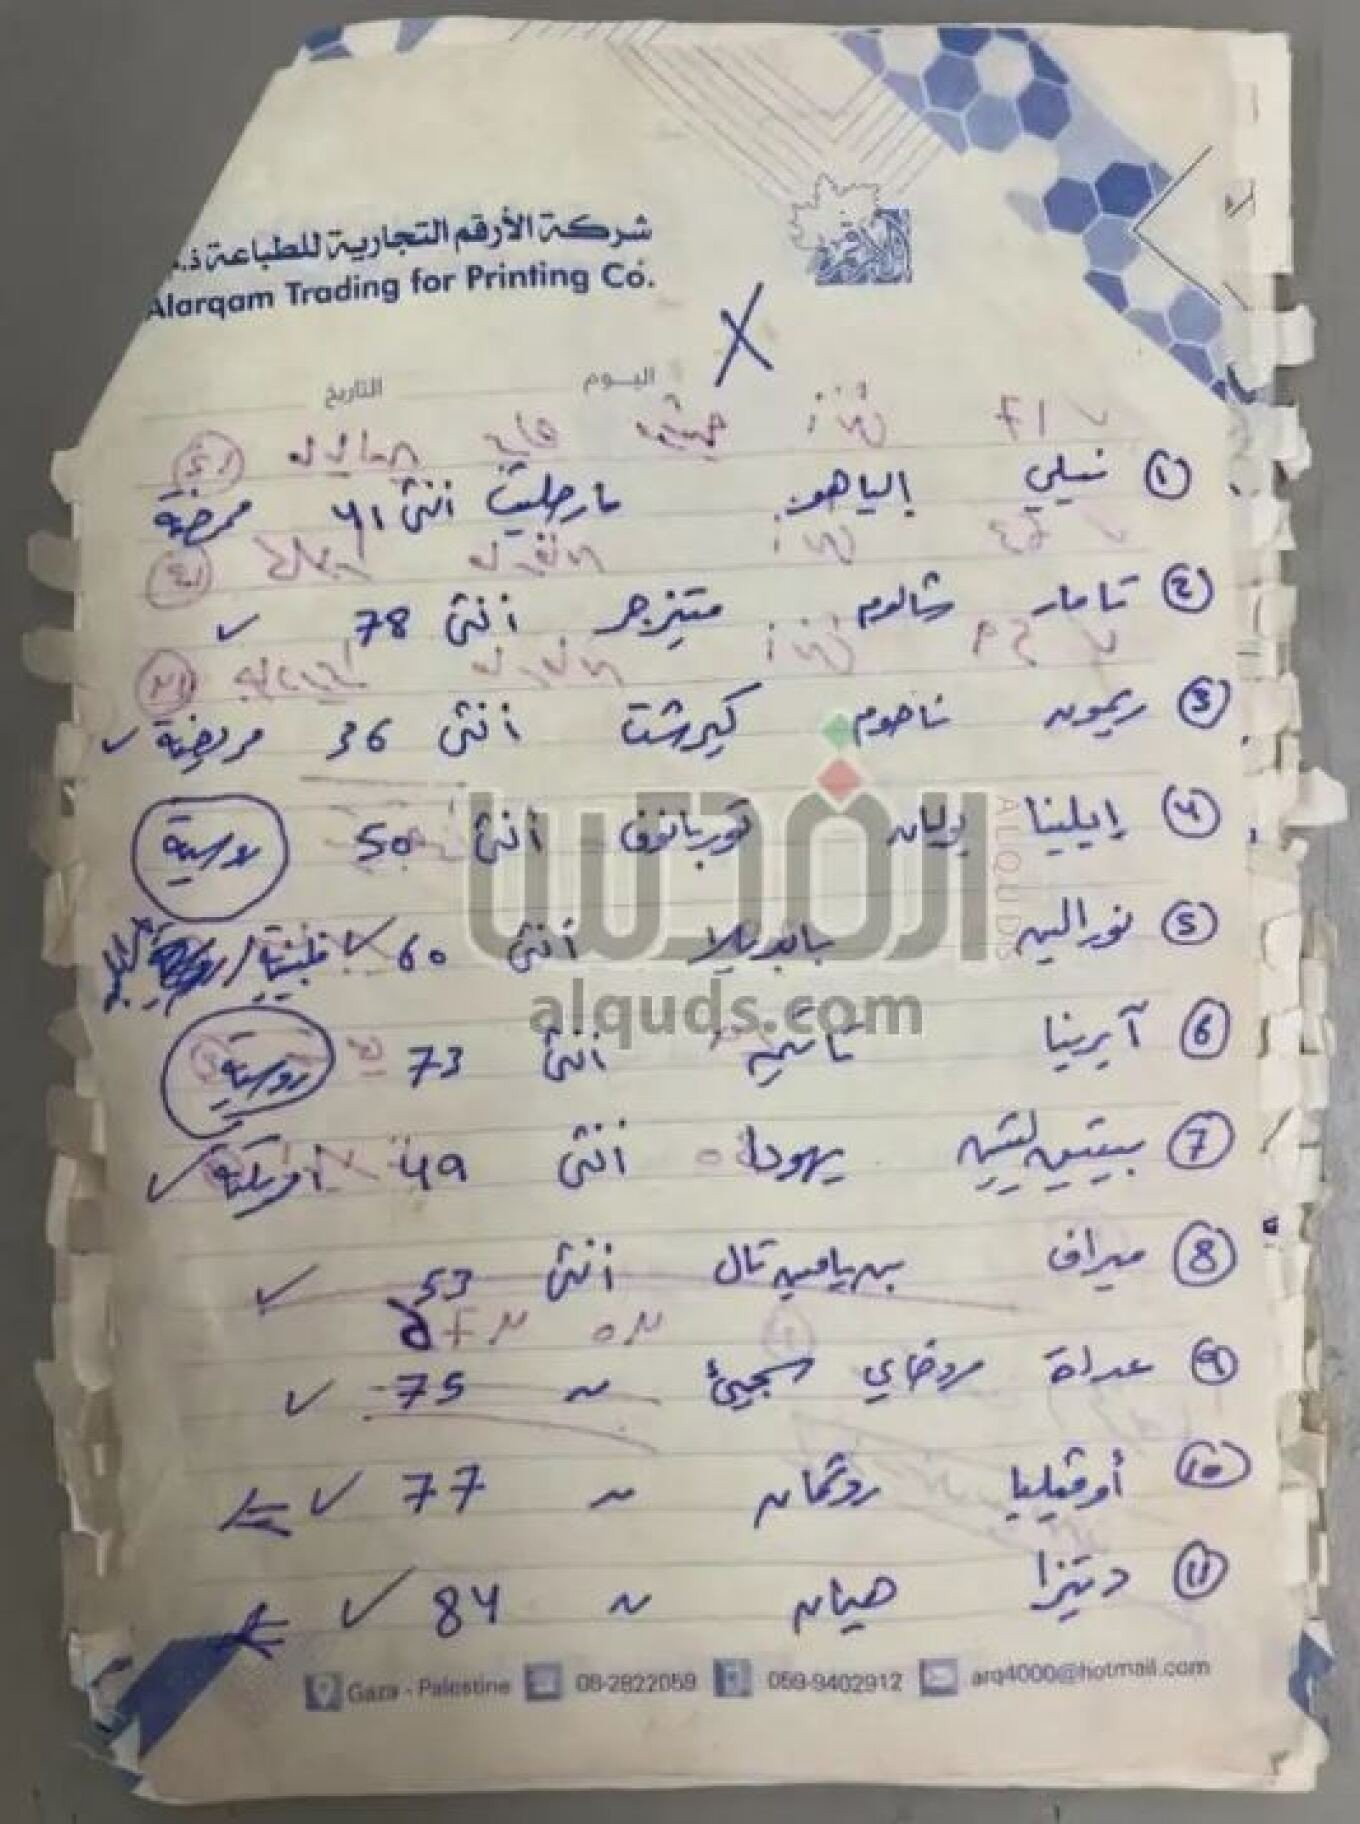 شركة الأرقم التجارية للطباعة ذ.م
Alarqam Trading for Printing Co.
اليوم التاريخ
١ نيلي الياهو مارجليت أنثى 41 ممرضة
2 تامار شالوم متيزجر أنثى 78 ✓
3 ريمون ناحوم كيرشت أنثى 36 مريضة ✓
4 إيلينا يوليان توربانوف أنثى 50 روسية
5 نورالين بابديلا أنثى 60 ✓ فلبينية /
6 آيرينا تاتي أنثى 73 روسية
7 بيتيس لتين يهودا أنثى 49 ✓
8 ميراف بن يامين تال أنثى 53 ✓
9 عداة مردخاي سجيئ ~ 75 ✓
10 أوفيليا روتمان ~ 77 ✓
11 ديتزا هيمان ~ 84 ✓
القدس
ALQUDS
alquds.com
Gaza - Palestine 08-2822059 059-9402912 arq4000@hotmail.com